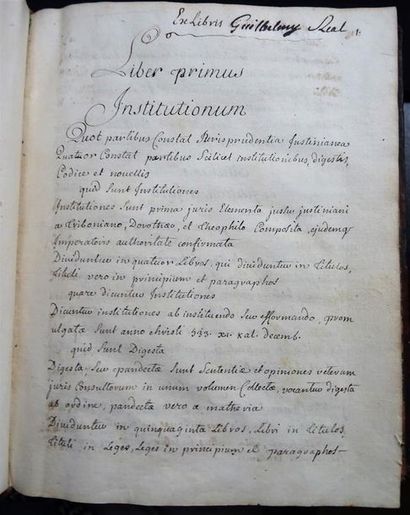 Ex Libris Guilhelmy Real
Liber primus
Institutionum
Quot partibus Constat Jurisprudentia Justinianea
Quatuor Constat partibus Scilicet institutionibus, digestis,
Codice et nouellis
quid Sunt Institutiones
Institutiones Sunt prima juris Elementa jussu justiniani
a Triboniano, Dorotheo, et Theophilo Composita, ejusdemq
Imperatoris authoritate confirmata
Diuiduntur in quatuor Libros, qui diuiduntur in titulos,
tituli vero in principium et paragraphos
quare dicuntur Institutiones
Dicuntur institutiones ab instituendo seu efformando, prom
ulgata Sunt anno christi 533. xi. kal. decemb.
quid Sunt Digesta
Digesta, Seu pandecta Sunt Sententiæ et opiniones veterum
juris Consultorum in unum volumen Collectæ, vocantur digesta
ab ordine, pandecta vero a materia
Diuiduntur in quinquaginta Libros, Libri in titulos,
tituli in Leges, Leges in principium et paragraphos